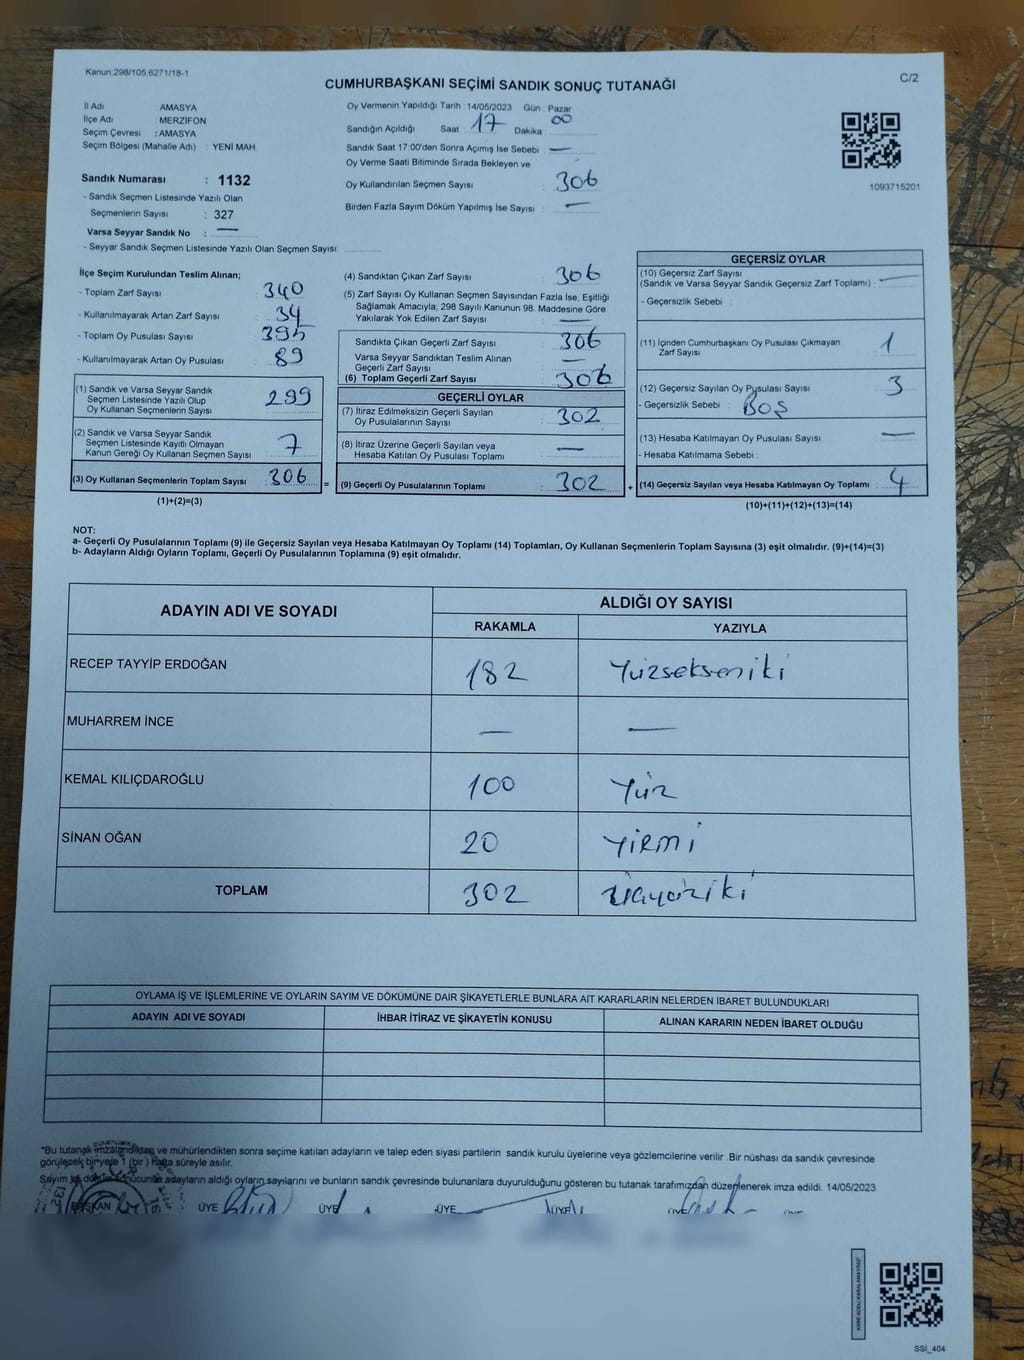 Kanun:298/105;6271/18-1
C/2
CUMHURBAŞKANI SEÇİMİ SANDIK SONUÇ TUTANAĞI
İl Adı : AMASYA
İlçe Adı : MERZİFON
Seçim Çevresi : AMASYA
Seçim Bölgesi (Mahalle Adı) : YENİ MAH.
Sandık Numarası : 1132
- Sandık Seçmen Listesinde Yazılı Olan
Seçmenlerin Sayısı : 327
Varsa Seyyar Sandık No : —
- Seyyar Sandık Seçmen Listesinde Yazılı Olan Seçmen Sayısı:
Oy Vermenin Yapıldığı Tarih : 14/05/2023 Gün : Pazar
Sandığın Açıldığı Saat : 17 Dakika : 00
Sandık Saat 17:00'den Sonra Açımış İse Sebebi : —
Oy Verme Saati Bitiminde Sırada Bekleyen ve
Oy Kullandırılan Seçmen Sayısı : 306
Birden Fazla Sayım Döküm Yapılmış İse Sayısı : —
1093715201
İlçe Seçim Kurulundan Teslim Alınan;
- Toplam Zarf Sayısı : 340
- Kullanılmayarak Artan Zarf Sayısı : 34
- Toplam Oy Pusulası Sayısı : 395
- Kullanılmayarak Artan Oy Pusulası : 89
(1) Sandık ve Varsa Seyyar Sandık
Seçmen Listesinde Yazılı Olup
Oy Kullanan Seçmenlerin Sayısı : 299
(2) Sandık ve Varsa Seyyar Sandık
Seçmen Listesinde Kayıtlı Olmayan
Kanun Gereği Oy Kullanan Seçmen Sayısı : 7
(3) Oy Kullanan Seçmenlerin Toplam Sayısı : 306 =
(1)+(2)=(3)
(4) Sandıktan Çıkan Zarf Sayısı : 306
(5) Zarf Sayısı Oy Kullanan Seçmen Sayısından Fazla İse, Eşitliği
Sağlamak Amacıyla; 298 Sayılı Kanunun 98. Maddesine Göre
Yakılarak Yok Edilen Zarf Sayısı : —
Sandıkta Çıkan Geçerli Zarf Sayısı : 306
Varsa Seyyar Sandıktan Teslim Alınan
Geçerli Zarf Sayısı : —
(6) Toplam Geçerli Zarf Sayısı : 306
GEÇERLİ OYLAR
(7) İtiraz Edilmeksizin Geçerli Sayılan
Oy Pusulalarının Sayısı : 302
(8) İtiraz Üzerine Geçerli Sayılan veya
Hesaba Katılan Oy Pusulası Toplamı : —
(9) Geçerli Oy Pusulalarının Toplamı : 302 +
GEÇERSİZ OYLAR
(10) Geçersiz Zarf Sayısı
(Sandık ve Varsa Seyyar Sandık Geçersiz Zarf Toplamı) : —
- Geçersizlik Sebebi :
(11) İçinden Cumhurbaşkanı Oy Pusulası Çıkmayan
Zarf Sayısı : 1
(12) Geçersiz Sayılan Oy Pusulası Sayısı : 3
- Geçersizlik Sebebi : BOŞ
(13) Hesaba Katılmayan Oy Pusulası Sayısı : —
- Hesaba Katılmama Sebebi :
(14) Geçersiz Sayılan veya Hesaba Katılmayan Oy Toplamı : 4
(10)+(11)+(12)+(13)=(14)
NOT:
a- Geçerli Oy Pusulalarının Toplamı (9) ile Geçersiz Sayılan veya Hesaba Katılmayan Oy Toplamı (14) Toplamları, Oy Kullanan Seçmenlerin Toplam Sayısına (3) eşit olmalıdır. (9)+(14)=(3)
b- Adayların Aldığı Oyların Toplamı, Geçerli Oy Pusulalarının Toplamına (9) eşit olmalıdır.
ADAYIN ADI VE SOYADI
ALDIĞI OY SAYISI
RAKAMLA YAZIYLA
RECEP TAYYİP ERDOĞAN 182 Yüzsekseniki
MUHARREM İNCE — —
KEMAL KILIÇDAROĞLU 100 Yüz
SİNAN OĞAN 20 Yirmi
TOPLAM 302
OYLAMA İŞ VE İŞLEMLERİNE VE OYLARIN SAYIM VE DÖKÜMÜNE DAİR ŞİKAYETLERLE BUNLARA AİT KARARLARIN NELERDEN İBARET BULUNDUKLARI
ADAYIN ADI VE SOYADI İHBAR İTİRAZ VE ŞİKAYETİN KONUSU ALINAN KARARIN NEDEN İBARET OLDUĞU
*Bu tutanak imzalandıktan ve mühürlendikten sonra seçime katılan adayların ve talep eden siyasi partilerin sandık kurulu üyelerine veya gözlemcilerine verilir. Bir nüshası da sandık çevresinde
görülecek bir yere 1 (bir) hafta süreyle asılır.
Sayım ve döküm sonucunda adayların aldığı oyların sayılarını ve bunların sandık çevresinde bulunanlara duyurulduğunu gösteren bu tutanak tarafımızdan düzenlenerek imza edildi. 14/05/2023
BAŞKAN ÜYE ÜYE ÜYE ÜYE ÜYE ÜYE
KARE KODU KARALAMAYINIZ!
SSI_404